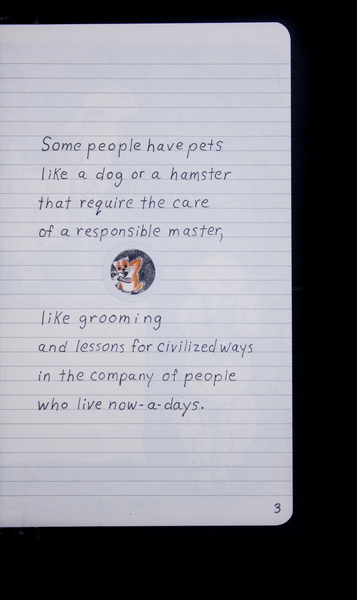 Some people have pets
like a dog or a hamster
that require the care
of a responsible master,
like grooming
and lessons for civilized ways
in the company of people
who live now-a-days.
3